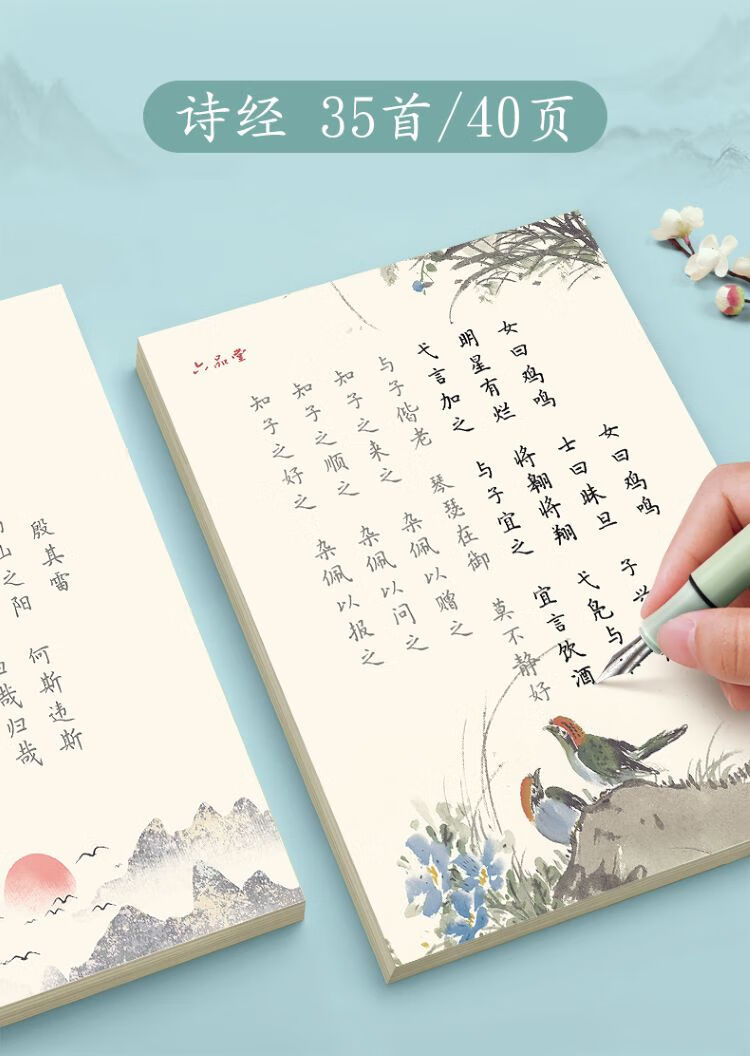 诗经 35首/40页
六品堂
女曰鸡鸣
女曰鸡鸣 士曰昧旦 子兴
明星有烂 将翱将翔 弋凫与
弋言加之 与子宜之 宜言饮酒
与子偕老 琴瑟在御 莫不静好
知子之来之 杂佩以赠之
知子之顺之 杂佩以问之
知子之好之 杂佩以报之
殷其雷 何斯违斯
山之阳 归哉归哉